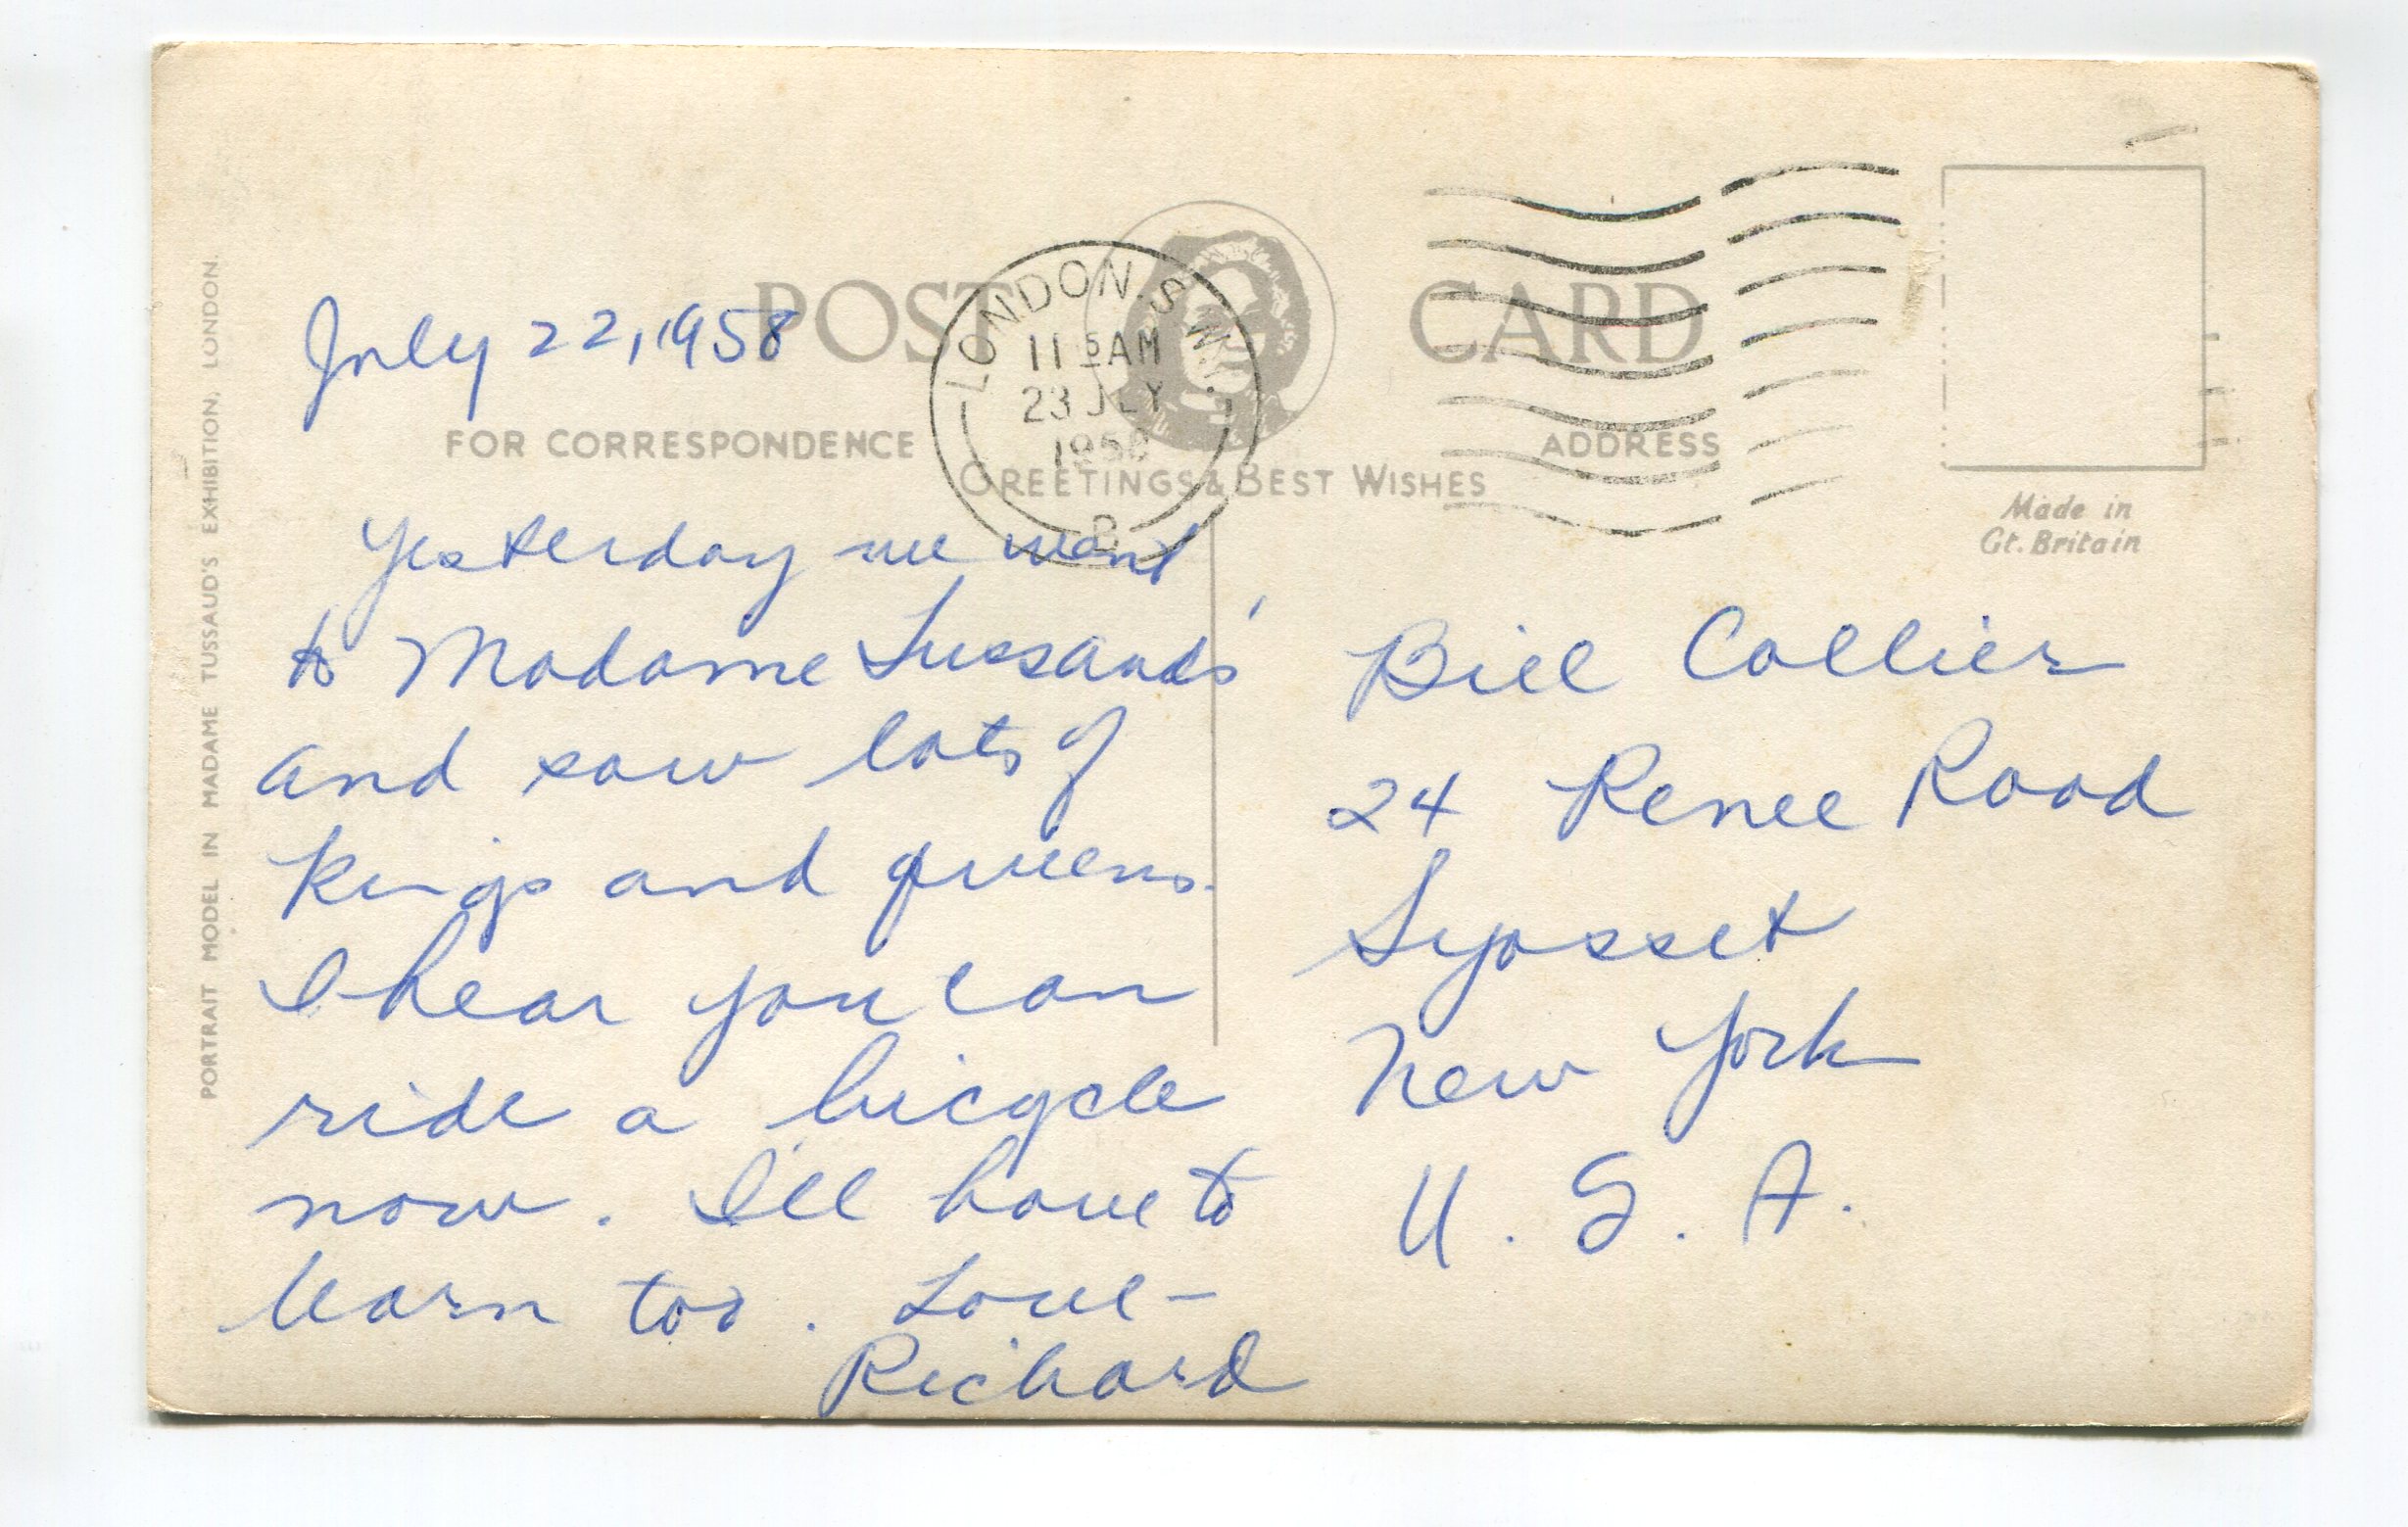 POST CARD
LONDON. S.W.1.
11 15 AM
23 JLY
1958
B
July 22, 1958
FOR CORRESPONDENCE
ADDRESS
GREETINGS & BEST WISHES
Made in
Gt. Britain
PORTRAIT MODEL IN MADAME TUSSAUD'S EXHIBITION, LONDON.
Yesterday we went
to Madame Tussauds'
and saw lots of
kings and queens.
I hear you can
ride a bicycle
now. I'll have to
learn too. Love –
Richard
Bill Collier
24 Renee Road
Syosset
New York
U. S. A.